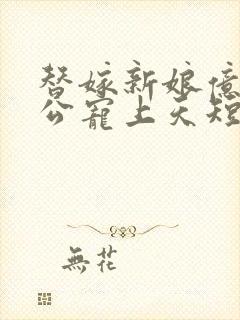 替嫁新娘億
公寵上天短
無花